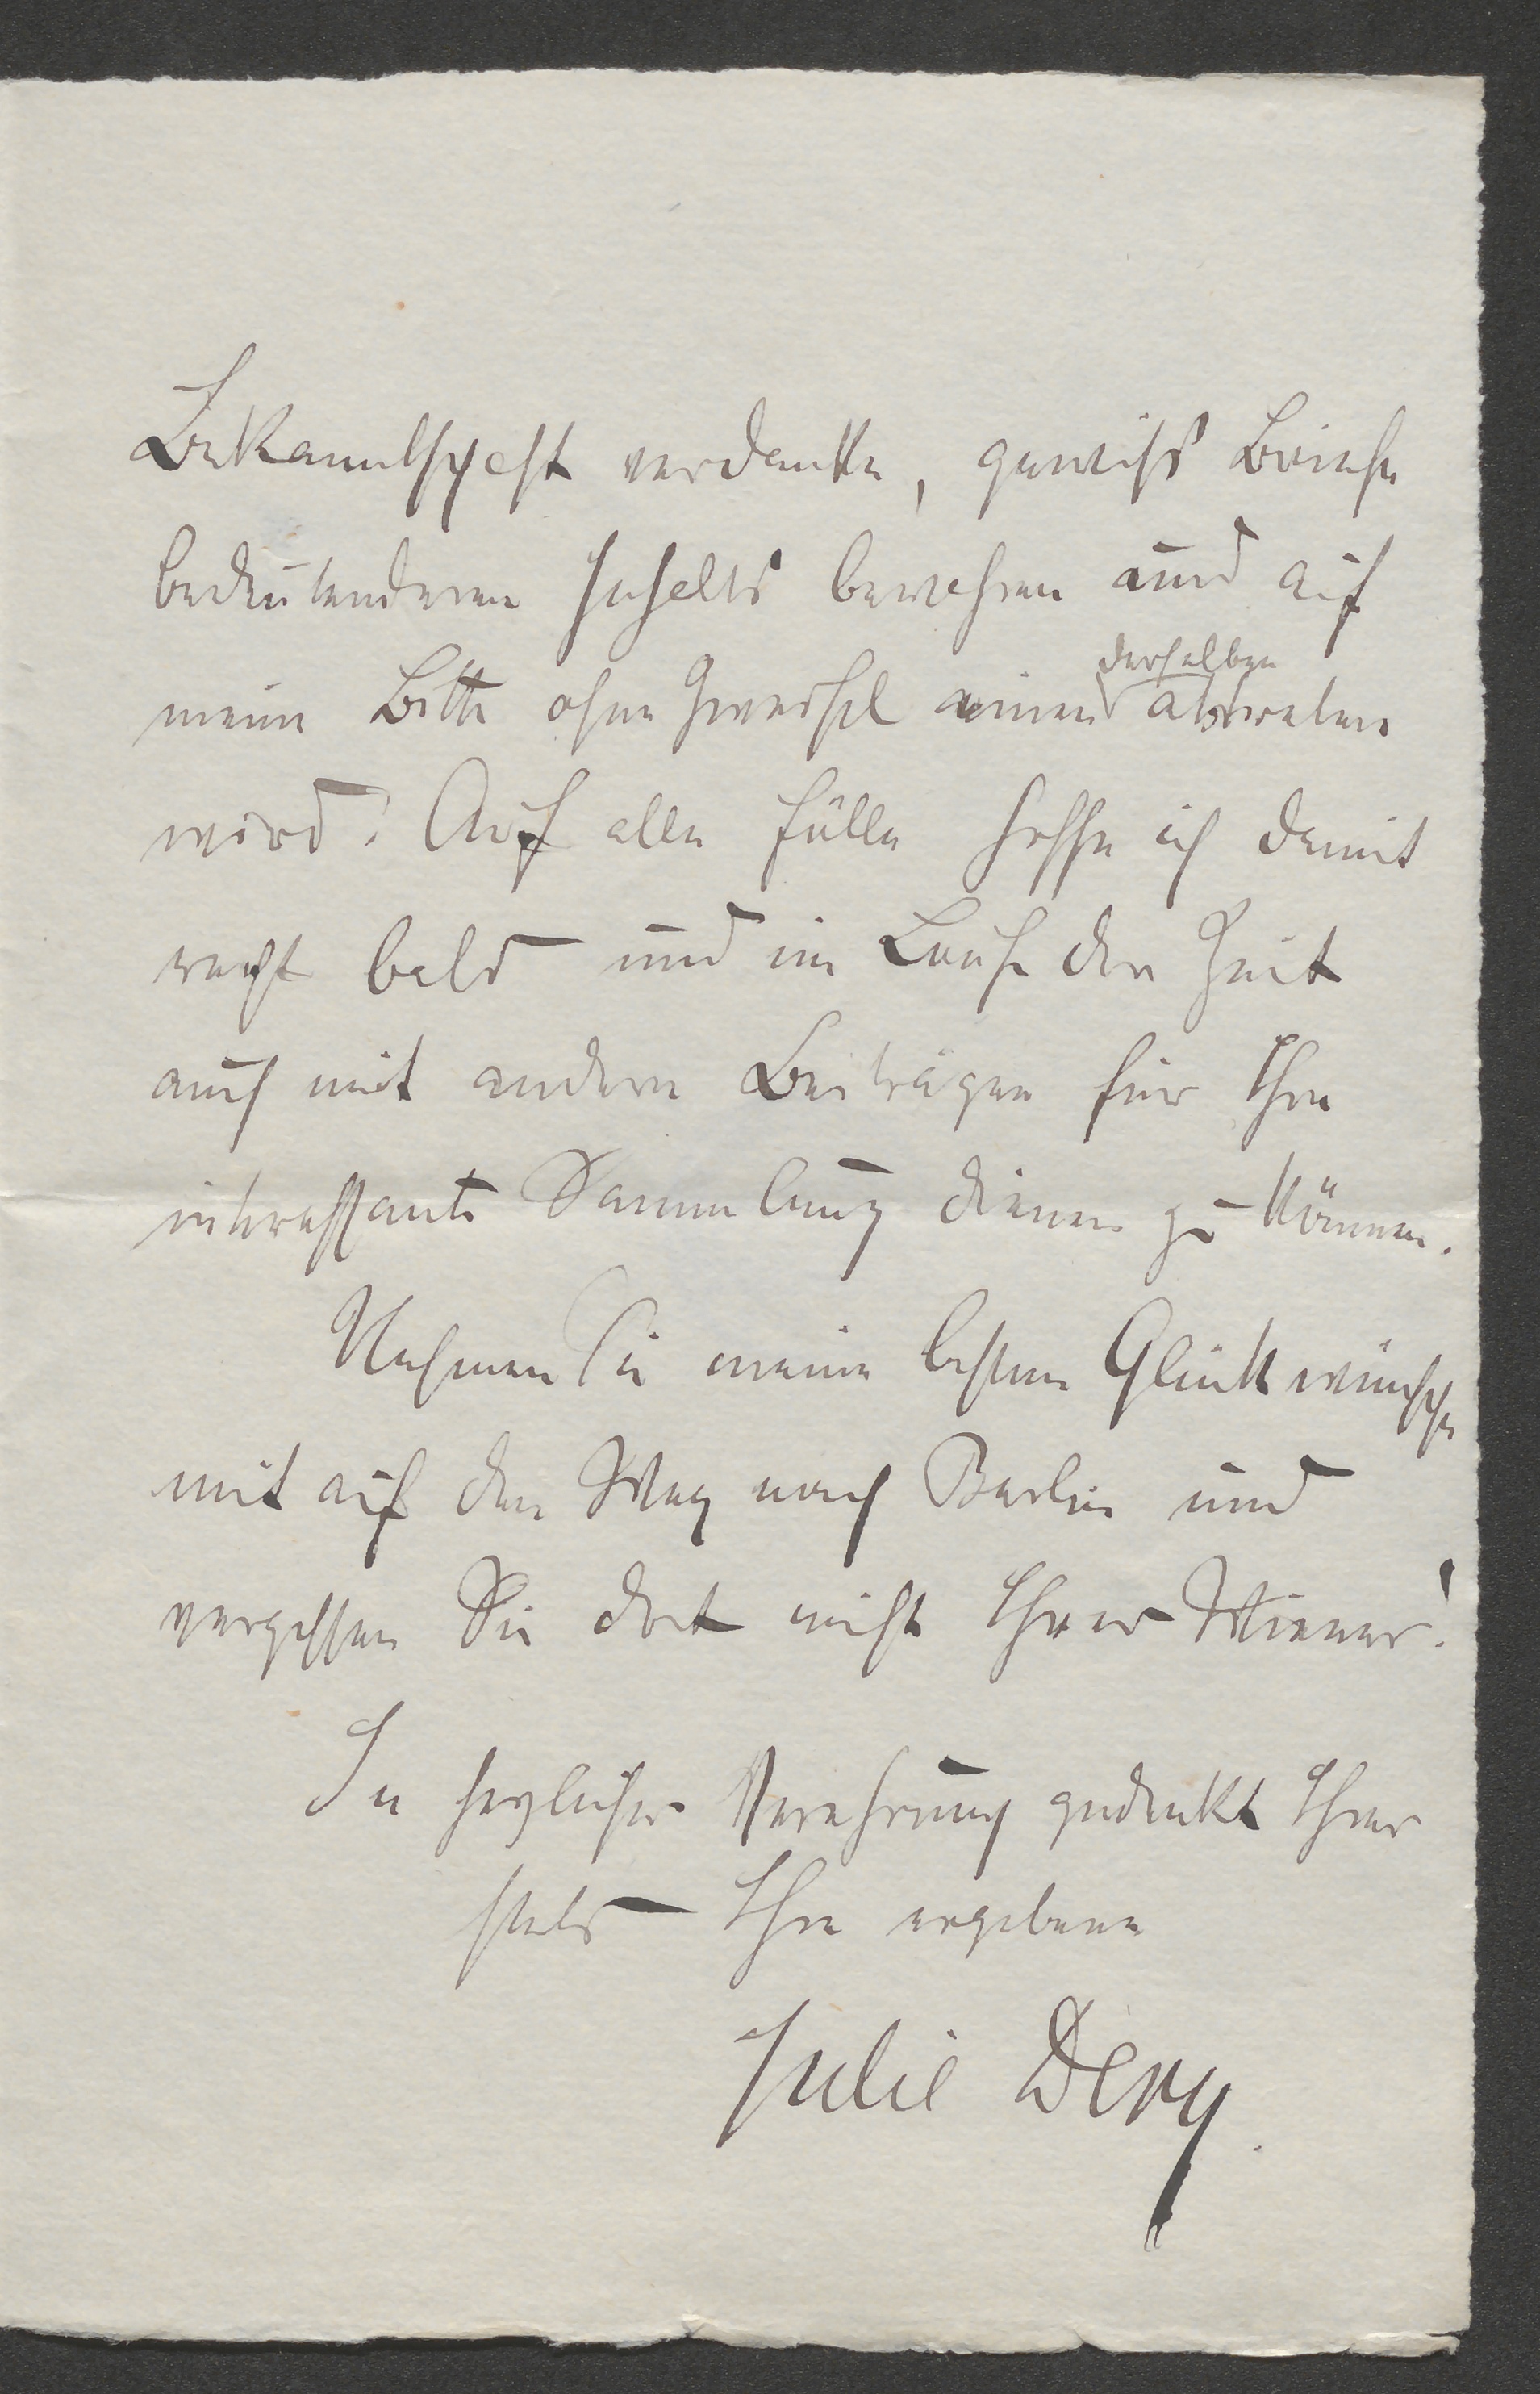 Bekanntschaft verdanke, gewiß Briefe
bedeutenderen Inhalts bewahren und auf
meine Bitte ohne Zweifel einen derselben abtreten
wird. Auf alle Fälle hoffe ich damit
recht bald und im Laufe der Zeit
auch mit andern Beiträgen für Ihre
interessante Sammlung dienen zu können.
Nehmen Sie meine besten Glückwünsche
mit auf den Weg nach Berlin und
vergessen Sie dort nicht Ihrer Wiener!
In herzlicher Verehrung gedenkt Ihrer
stets Ihre ergebene
Julie Dery